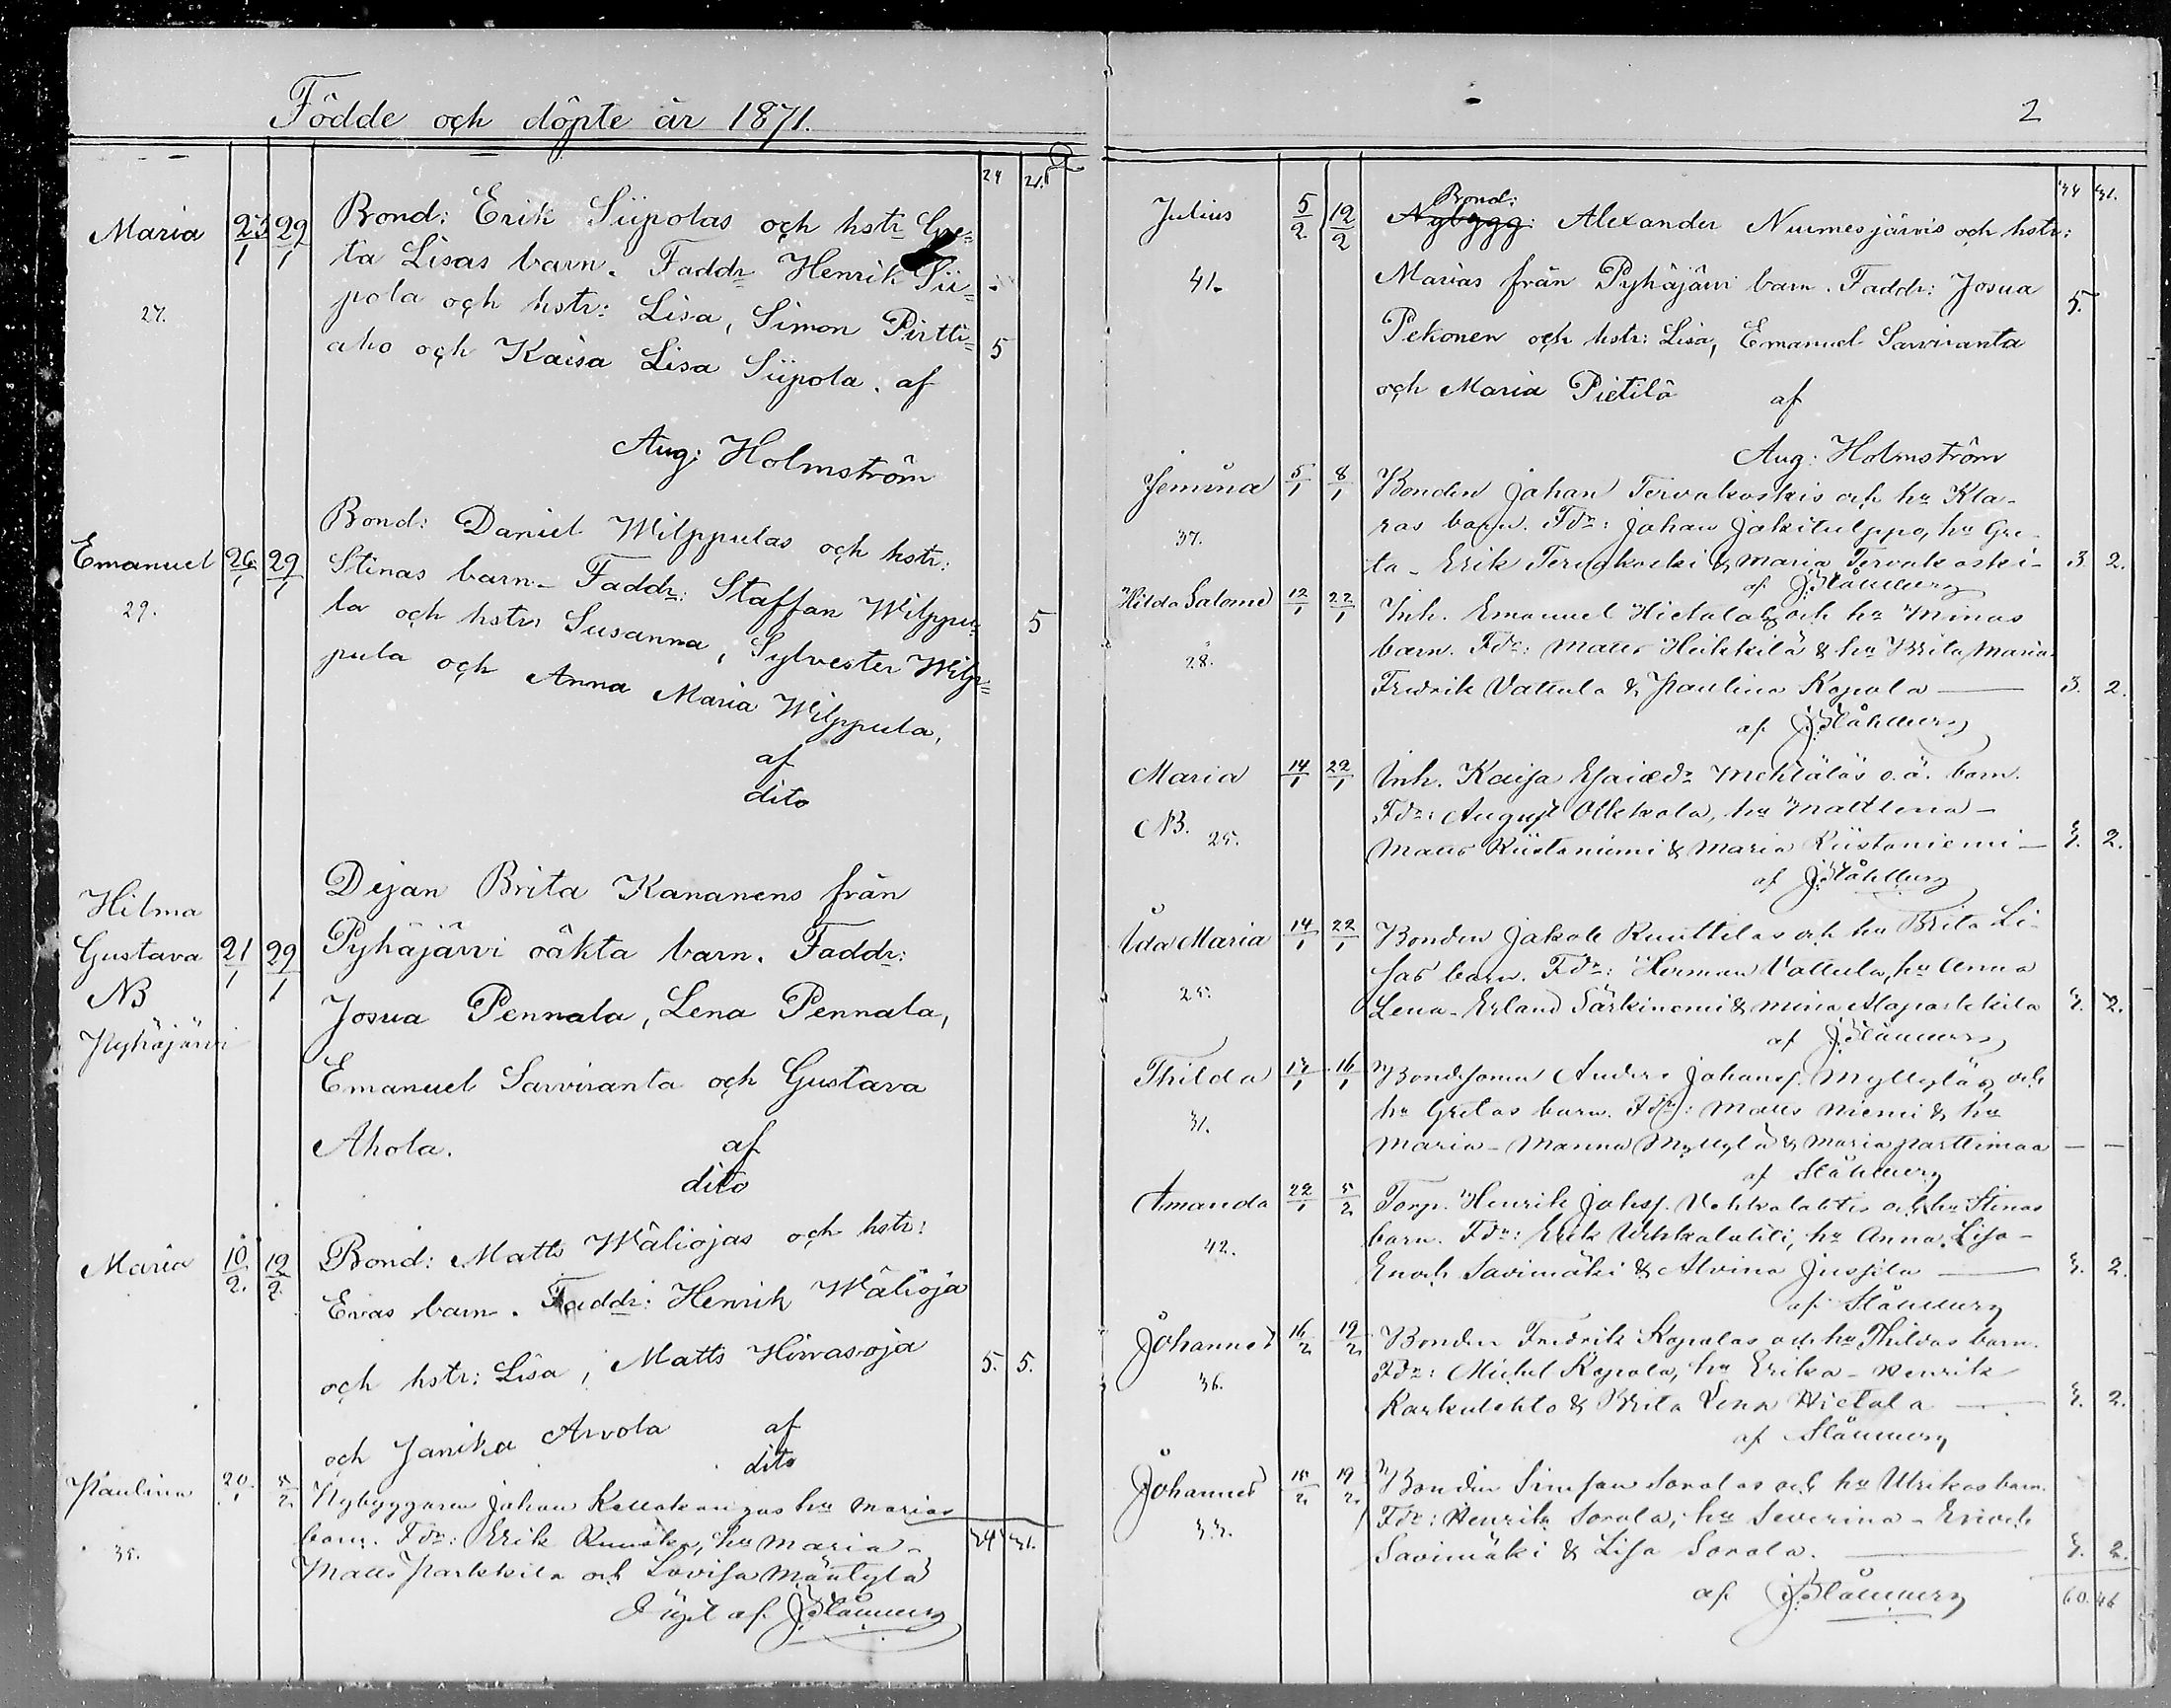 Födde och döpte år 1871.
24 21.
Maria 23/1 29/1 Bond: Erik Siipolas och hstr Gre=
ta Lisas barn. Faddr Henrik Sii=
27. pola och hstr: Lisa, Simon Pirtti=
aho och Kaisa Lisa Siipola. af 5
Aug: Holmström
Bond: Daniel Wilppulas och hstr:
Emanuel 26/1 29/1 Stinas barn – Faddr: Staffan Wilppu=
29. la och hstr: Susanna, Sylvester Wilp= 5
pula och Anna Maria Wilppula,
af
dito
Dejan Brita Kananens från
Hilma
Gustava 21/1 29/1 Pyhäjärvi oäkta barn. Faddr:
NB
Josua Pennala, Lena Pennala,
Pyhäjärvi
Emanuel Sarviranta och Gustava
Ahola. af
dito
Maria 10/2. 12/2. Bond: Matts Wäliojas och hstr:
Evas barn. Faddr: Henrik Wälioja
och hstr: Lisa, Matts Hirvasoja 5. 5.
och Janika Arvola af
dito
Paulina 20/1 5/2 Nybyggaren Johan hu Marias
barn. Fdr: Erik hu Maria – 34 31.
35. Matts Parkkila och Lovisa Mäntylä
Döpt af J Ståhlberg
2
34 31.
Bond:
Julius 5/2 12/2 Nybygg: Alexander Nurmesjärvis och hstr:
41. Marias från Pyhäjärvi barn. Faddr: Josua 5.
Pekonen och hstr: Lisa, Emanuel Sarviranta
och Maria Pietilä af
Aug: Holmström
Jemina 5/1 8/1 Bonden Johan Tervakoskis och hu Kla-
37. ras barn. Fdr: Johan hu Gre-
ta – Erik Tervakoski & Maria Tervakoski – 3. 2.
af J Ståhlberg
Hilda Salome 12/1 22/1 Inh. Emanuel Hietalas och hu Minas
28. barn. Fdr: Matts Heikkilä & hu Brita Maria –
Fredrik Vattula & Paulina Kopola — 3. 2.
af J Ståhlberg
Maria 14/1 22/1 Inh. Kaisa Mehtäläs o.ä. barn.
NB. 25. Fdr: August Ollikkala, hu
Matts Riistaniemi & Maria Riistaniemi — 3. 2.
af J Ståhlberg
Ida Maria 14/1 22/1 Bonden Jakob Ruuttilas och hu Brita Li-
25. sas barn. Fdr: Herman Vattula, hu Anna
Lena – Erland Särkiniemi & Mina 3. 2.
af J Ståhlberg
Thilda 14/1 16/1 Bondsonen Anders Johanss. Myllyläs och
31. hu Gretas barn. Fdr: Matts Niemi & hu
Maria – Manna Myllylä & Maria Parttimaa — —
af Ståhlberg
Amanda 22/1 5/2 Torp. Henrik Johss. Vehkalahtis och hu Stinas
42. barn. Fdr: Erik Vehkalahti, hu Anna Lisa –
Enoch Savimäki & Alvina Jussila — 3. 2.
af Ståhlberg
Johannes 16/2 19/2 Bonden Fredrik Kopolas och hu Thildas barn.
36. Fdr: Michel Kopola, hu Erika – Henrik
Karkulehto & Brita Lena Hietala — 3. 2.
af Ståhlberg
Johannes 15/2 19/2 Bonden Simson Sorolas och hu Ulrikas barn.
33. Fdr: Henrik Sorola, hu Severina – Enoch
Savimäki & Lisa Sorola. — 3. 2.
af J Ståhlberg 60. 46